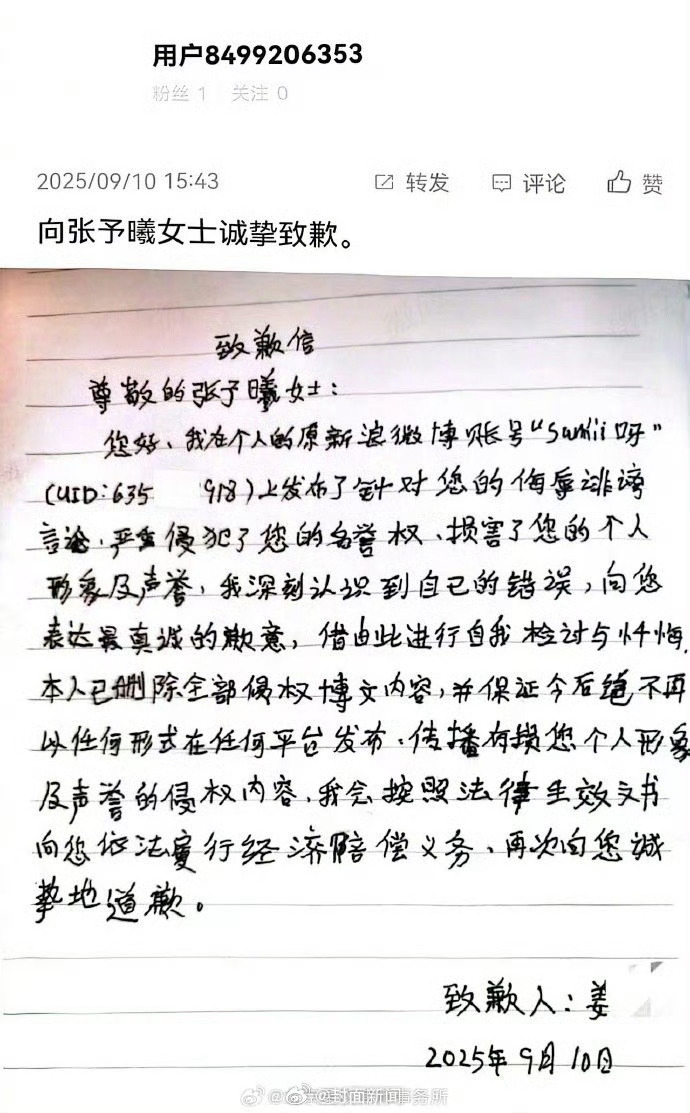 用户8499206353
粉丝 1 关注 0
2025/09/10 15:43 转发 评论 赞
向张予曦女士诚挚致歉。
致歉信
尊敬的张予曦女士:
您好、我在个人的原新浪微博账号"Sunkii呀"
(UID:635 918)上发布了针对您的侮辱诽谤
言论,严重侵犯了您的名誉权、损害了您的个人
形象及声誉,我深刻认识到自己的错误,向您
表达最真诚的歉意,借由此进行自我检讨与忏悔,
本人已删除全部侵权博文内容,并保证今后绝不再
以任何形式在任何平台发布、传播有损您个人形象
及声誉的侵权内容,我会按照法律生效文书
向您依法履行经济赔偿义务、再次向您诚
挚地道歉。
致歉人:姜
2025年9月10日
@封面新闻 事务所